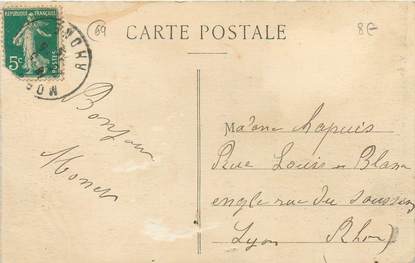 RÉPUBLIQUE FRANÇAISE
5c
POSTES
69
CARTE POSTALE
8€
Bonjour
Mme Chapuis
Rue Louis Blanc
angle rue du
Lyon Rhône